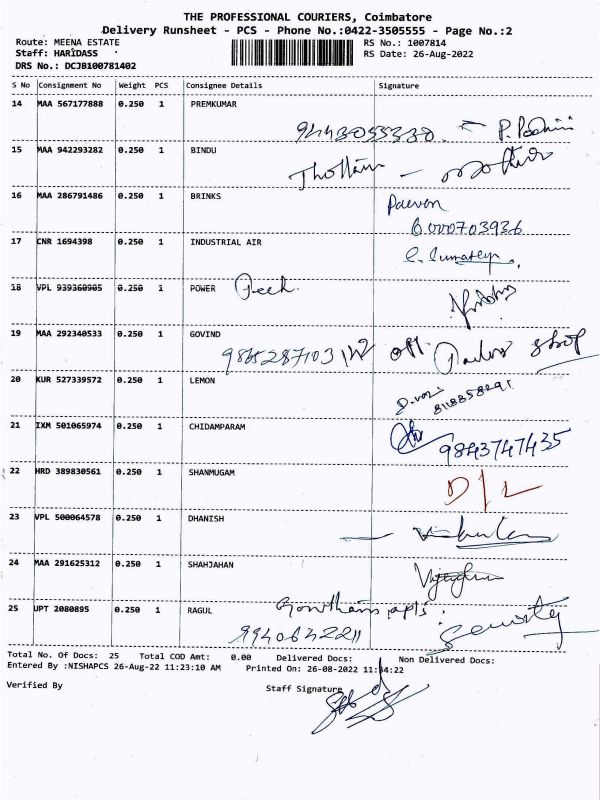 THE PROFESSIONAL COURIERS, Coimbatore
Delivery Runsheet - PCS - Phone No.:0422-3505555 - Page No.:2
Route: MEENA ESTATE
Staff: HARIDASS
DRS No.: DCJB100781402
RS No.: 1007814
RS Date: 26-Aug-2022
S No Consignment No Weight PCS Consignee Details Signature
14 MAA 567177888 0.250 1 PREMKUMAR
9443055330
15 MAA 942293282 0.250 1 BINDU
16 MAA 286791486 0.250 1 BRINKS
17 CNR 1694398 0.250 1 INDUSTRIAL AIR
18 VPL 939360905 0.250 1 POWER
19 MAA 292340533 0.250 1 GOVIND
shop
20 KUR 527339572 0.250 1 LEMON
21 IXM 501065974 0.250 1 CHIDAMPARAM
9843747435
22 HRD 389830561 0.250 1 SHANMUGAM
D/L
23 VPL 500064578 0.250 1 DHANISH
24 MAA 291625312 0.250 1 SHAHJAHAN
25 UPT 2080895 0.250 1 RAGUL
9940642211
Total No. Of Docs: 25 Total COD Amt: 0.00 Delivered Docs: Non Delivered Docs:
Entered By :NISHAPCS 26-Aug-22 11:23:10 AM Printed On: 26-08-2022
Verified By Staff Signature